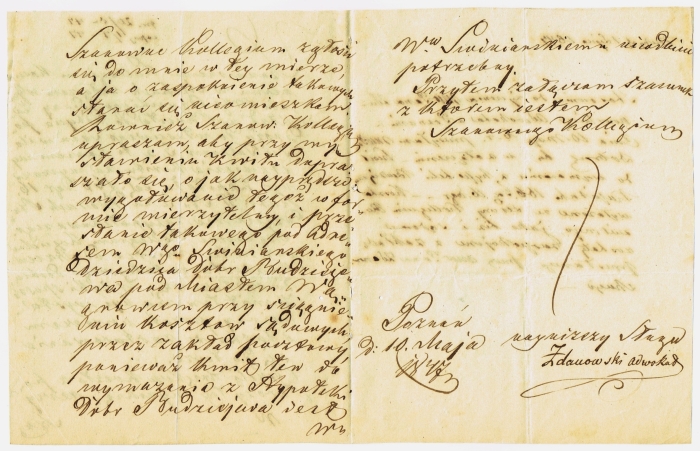 Szanowne Kollegium zgłosi
się do mnie w tey mierze,
a ja o zaspokojenie takowych
starać się nieomieszkam
Również Szanow. Kollegium
upraszam, aby przy wy
stawieniu Kwitu dopra
szało się o jak nayprędsze
wygotowanie tegoż w for
mie wierzytelney i prze
słanie takowego pod adre
sem Wgo Swinarskiego
Dziedzica Dobr Budziejе
wa pod Miastem Wą
growcem przy ściągnię
niu kosztow sądowych
przez zakład pocztowy
ponieważ Kwit ten do
wymazania z Hypoteki
Dobr Budziejewa iest
Wu
Wu Swinarskiemu nieodbicie
potrzebny.
Przytem załączam szacunek
z ktorem iestem
Szanownego Kollegium
Poznań
d. 10. Maja
nayniższy Sługa
Zdanowski adwokat